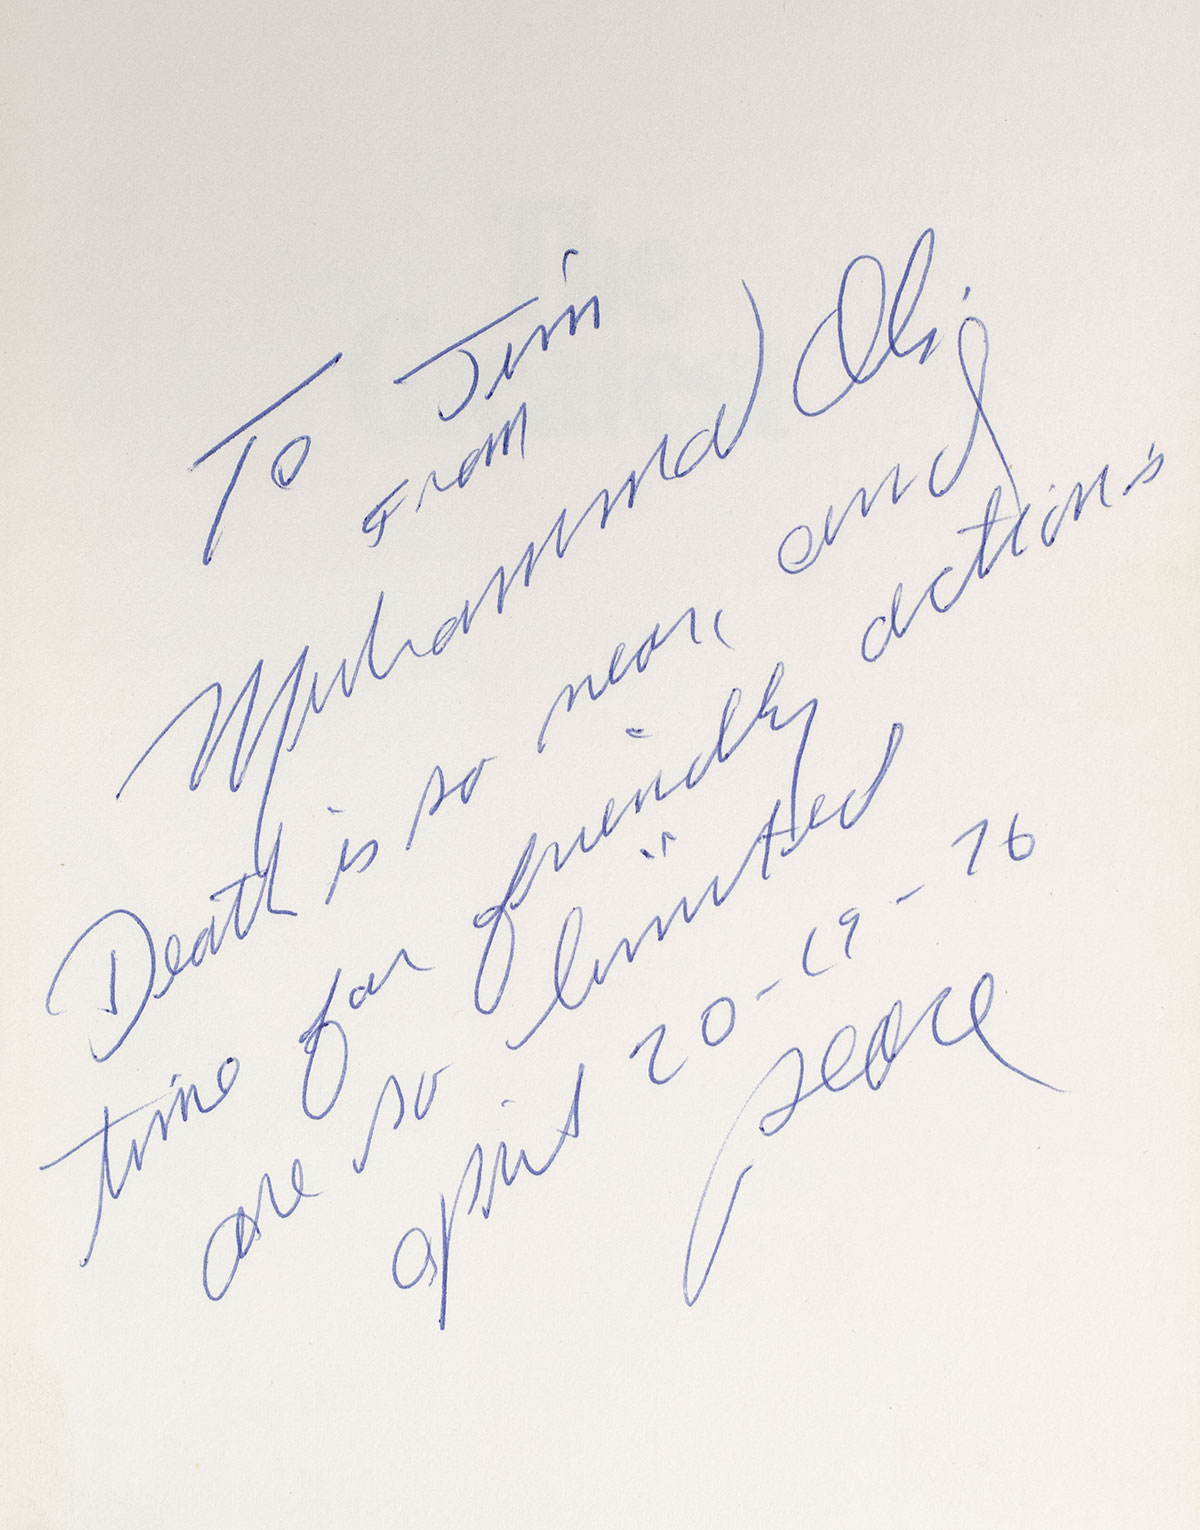 To Jim
From
Muhammad Ali
Death is so near, and
time for friendly actions
are so limited
april 20-19-76
peace